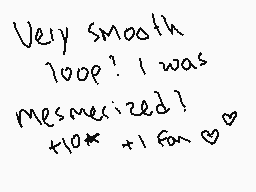 Very smooth
loop! I was
mesmerized!
+10★ +1 Fan ♡♡